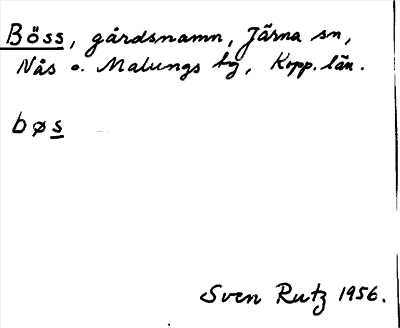 Böss, gårdsnamn, Järna sn,
Nås o. Malungs tg, Kopp. län.
bøs
Sven Rutz 1956.